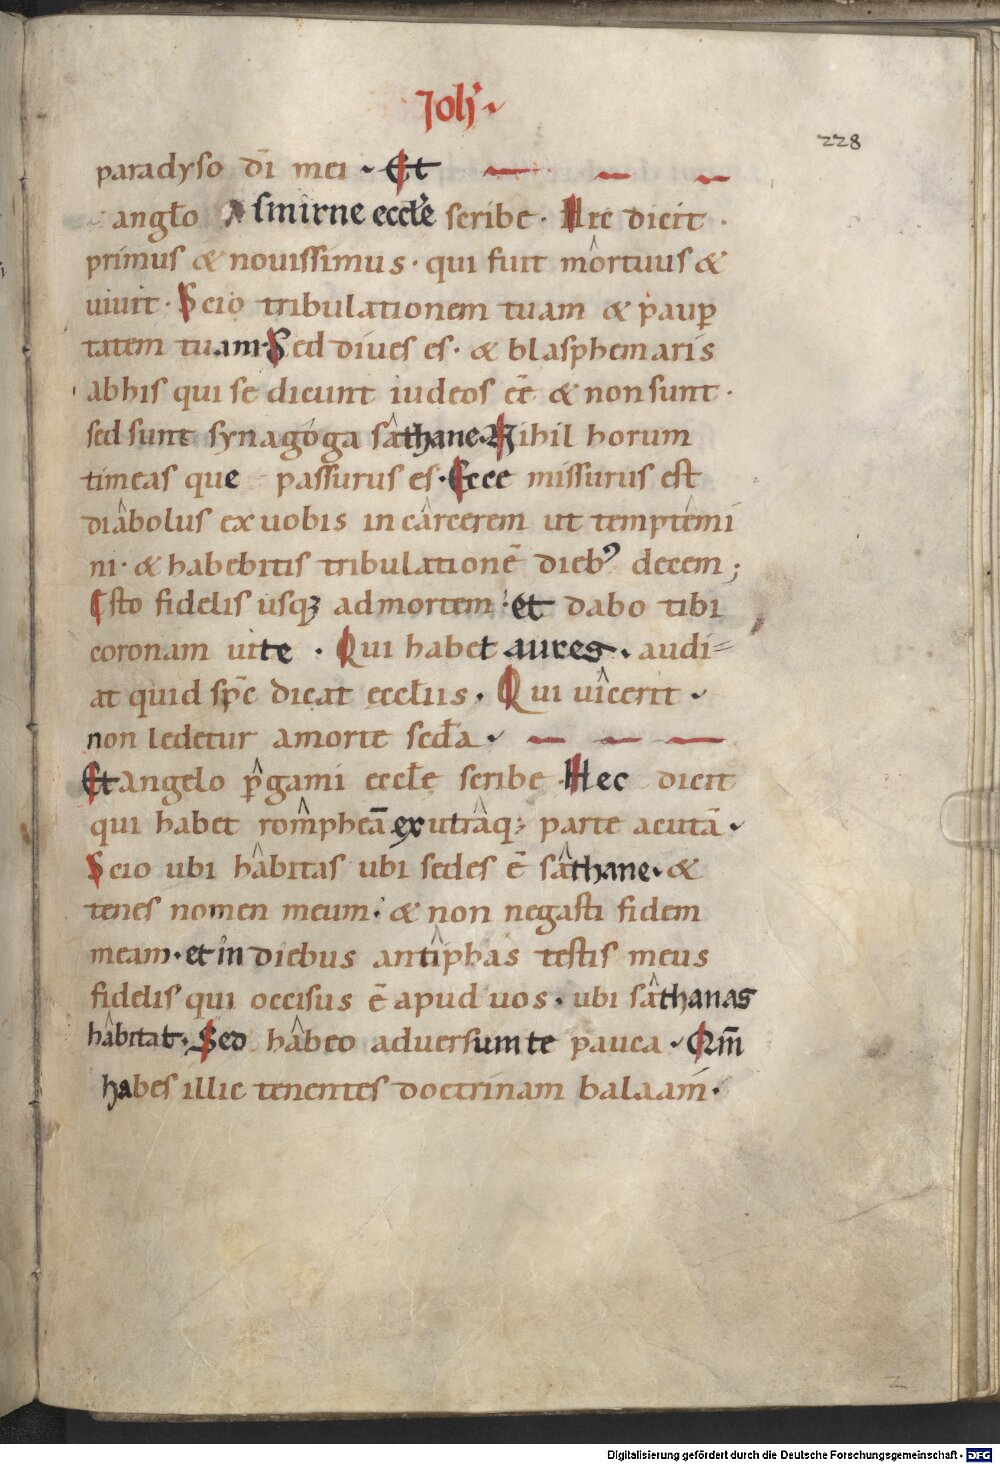 Joh̄
228
paradyso dī mei · Et
angło smirne eccłe scribe · Hec dicit ·
primus & nouissimus · qui fuit mortuus &
uiuit · Scio tribulationem tuam & paup
tatem tuam · Sed diues es · & blasphemaris
abhis qui se dicunt iudeos eē & non sunt ·
sed sunt synagoga sathane · Nihil horum
timeas que passurus es · Ecce missurus est
diabolus ex uobis in carcerem ut temptemi
ni · & habebitis tribulationē dieb⁹ decem ;
Esto fidelis usqꝫ admortem · et dabo tibi
coronam uite · Qui habet aures · audi=
at quid spc̄ dicat eccłiis · Qui uicerit ·
non ledetur amorte secł̄a ·
Et angelo pgami eccłe scribe · Hec dicit
qui habet rompheā ex utraq; parte acutā ·
Scio ubi habitas ubi sedes ē sathane · &
tenes nomen meum · & non negasti fidem
meam · et in diebus antiphas testis meus
fidelis qui occisus ē apud uos · ubi sathanas
habitat · Sed habeo aduersum te pauca · Qm̄
habes illic tenentes doctrinam balaam ·
Digitalisierung gefördert durch die Deutsche Forschungsgemeinschaft - DFG